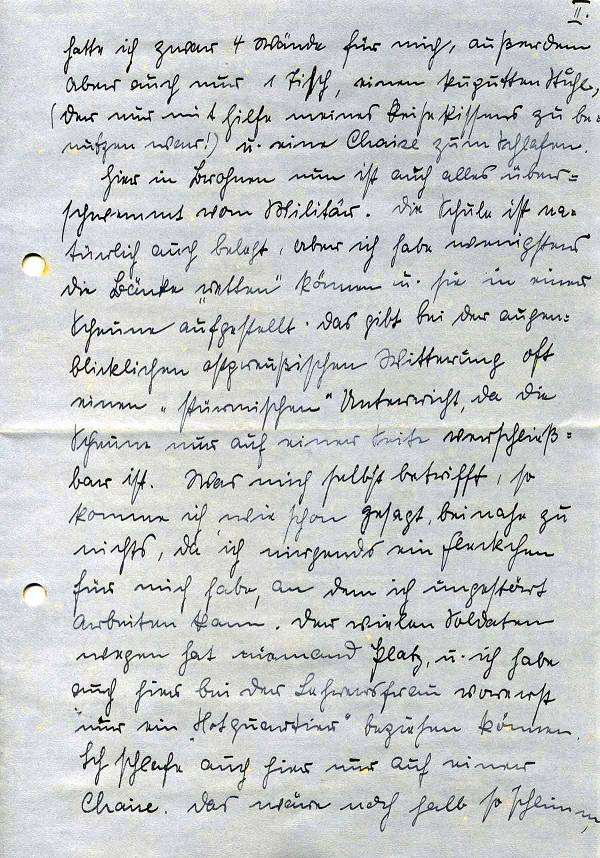 II.
hatte ich zwar 4 Wände für mich, außerdem
aber auch nur 1 Tisch, einen kaputten Stuhl,
(der nur mit Hilfe meines Reisekissens zu be=
nutzen war!) u. eine Chaise zum Schlafen.
Hier in Brohnen nun ist auch alles über=
schwemmt vom Militär. Die Schule ist na=
türlich auch belegt, aber ich habe wenigstens
die Bänke „retten" können u. sie in einer
Scheune aufgestellt. Das gibt bei der augen=
blicklichen ostpreußischen Witterung oft
einen „stürmischen" Unterricht, da die
Scheune nur auf einer Seite verschließ=
bar ist. Was mich selbst betrifft, so
komme ich, wie schon gesagt, beinahe zu
nichts, da ich nirgends ein Fleckchen
für mich habe, an dem ich ungestört
arbeiten kann. Der vielen Soldaten
wegen hat niemand Platz, u. ich habe
auch hier bei der Lehrersfrau vorerst
"nur ein Notquartier" beziehen können.
Ich schlafe auch hier nur auf einer
Chaise. Das wäre noch halb so schlimm,